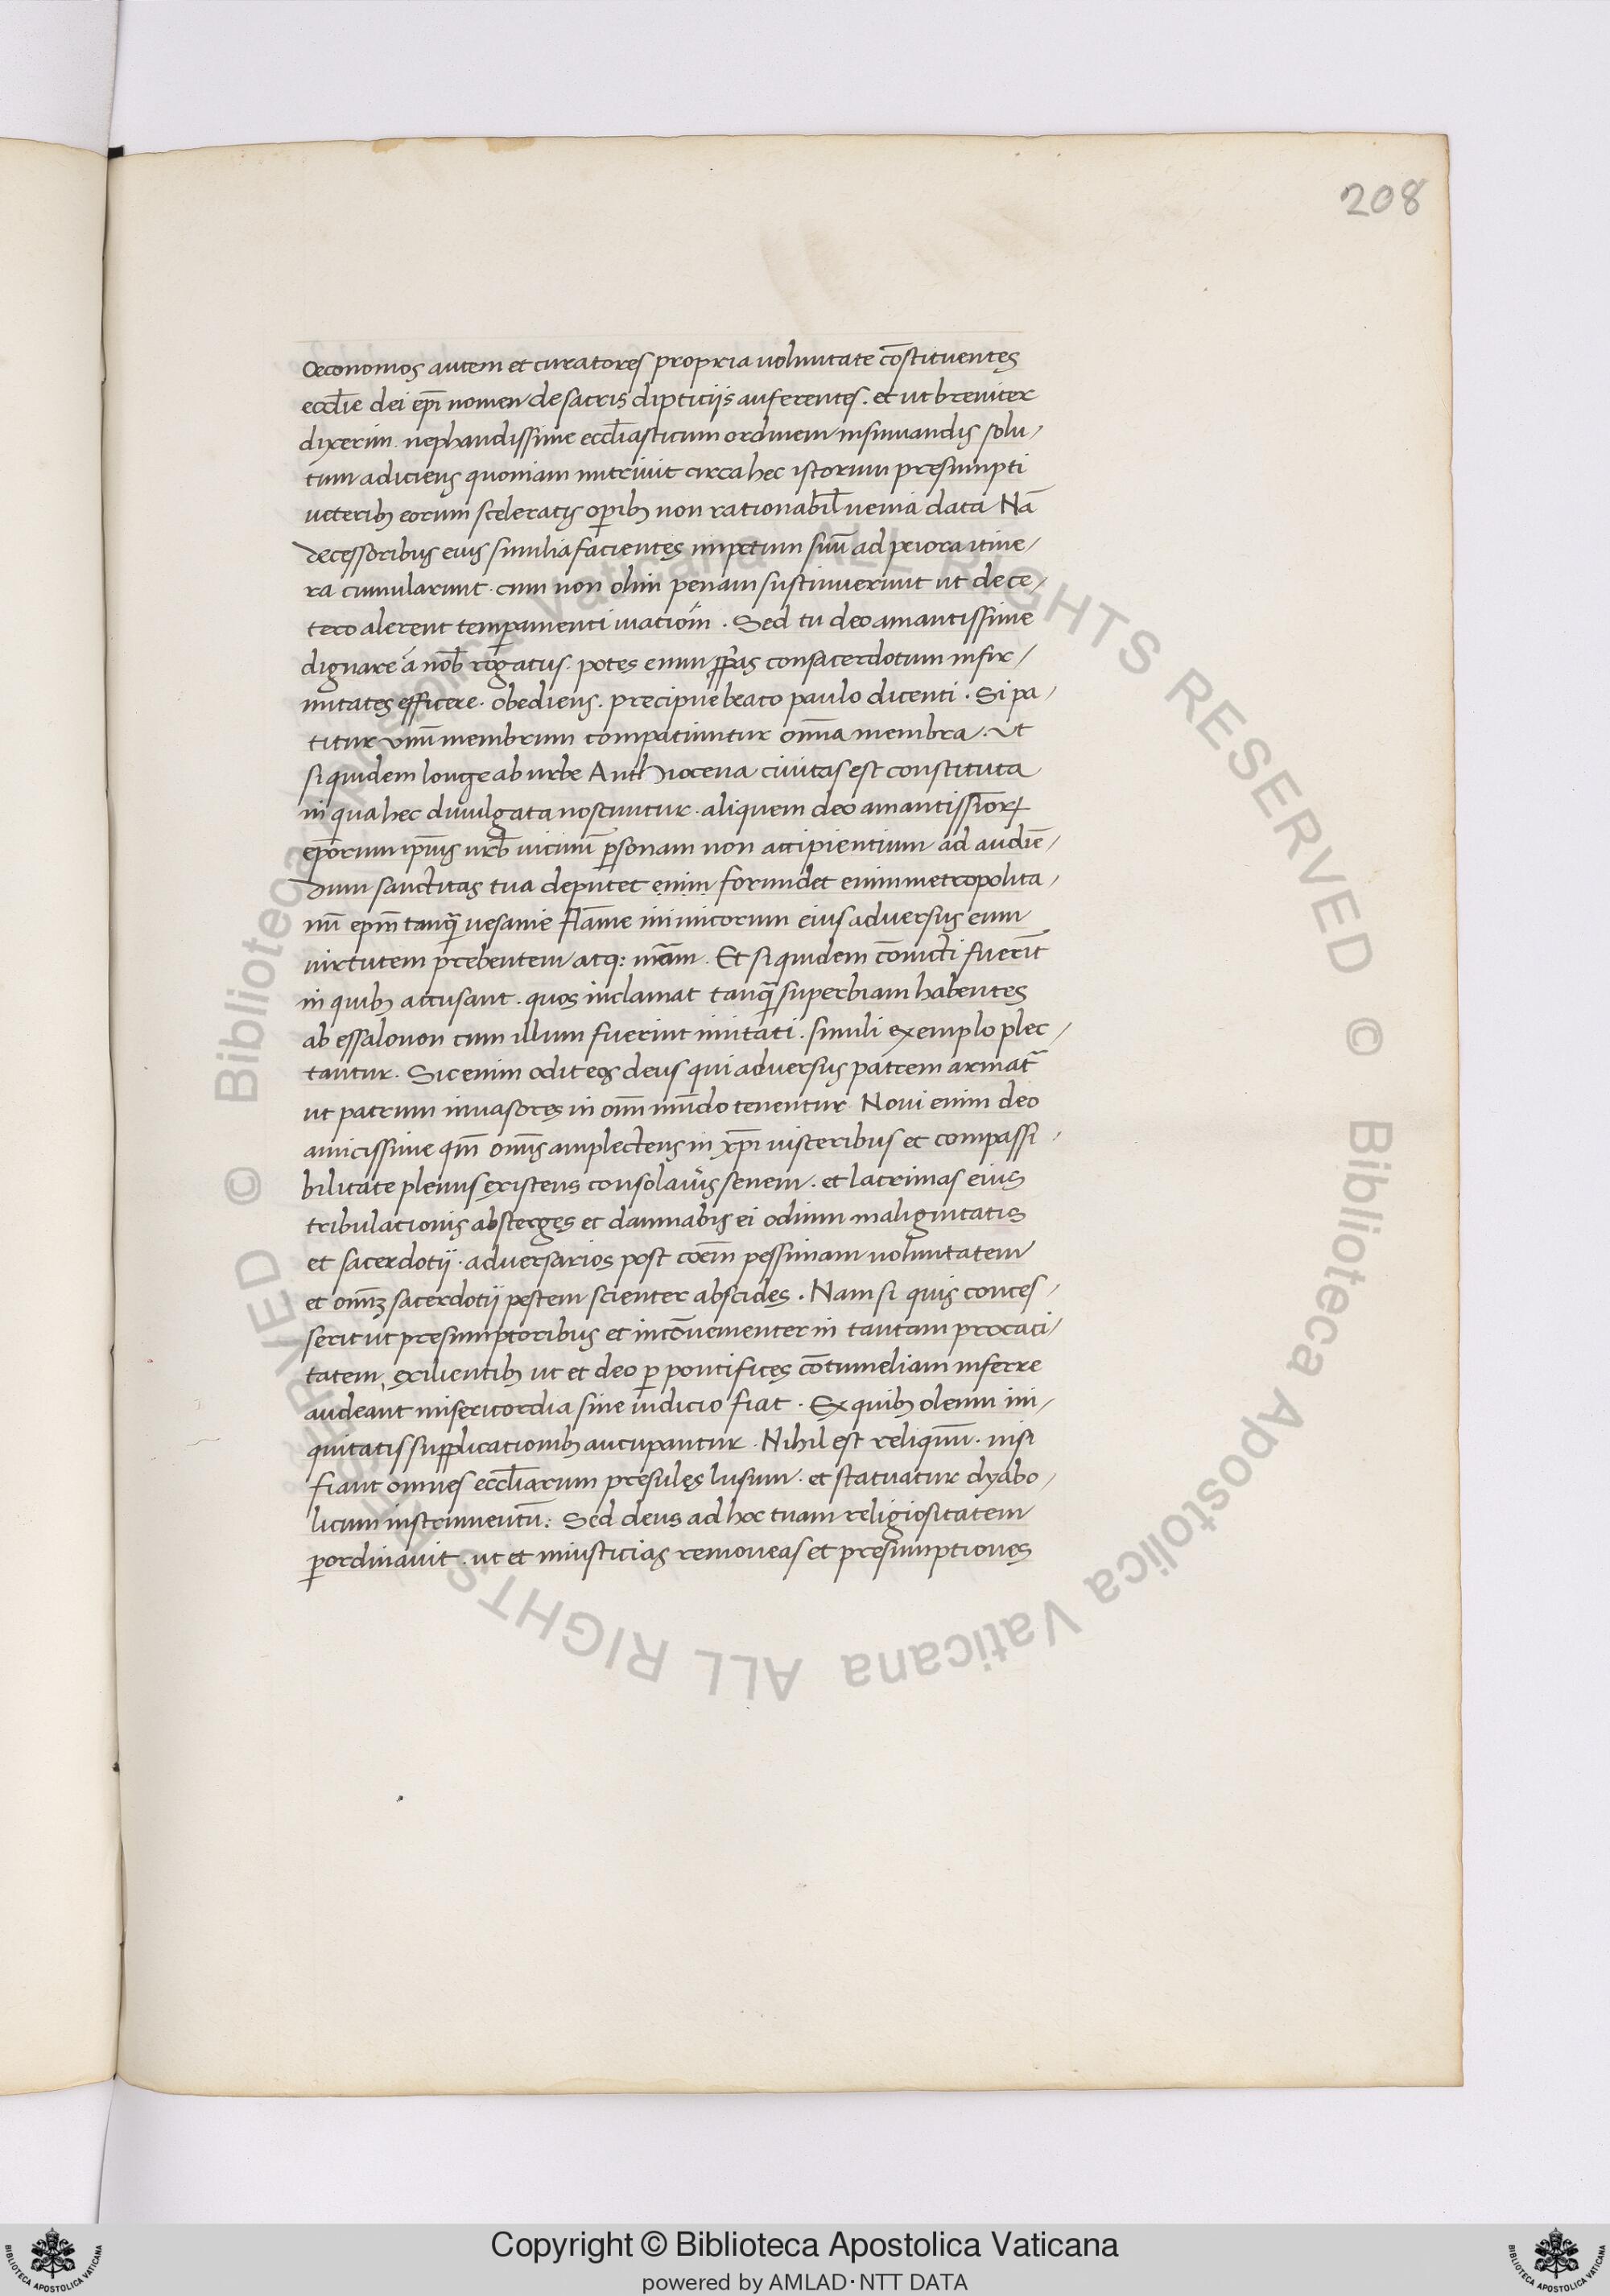 208
Oeconomos autem et curatores propria voluntate cōstituentes
eccl̄ie dei ep̄i nomen de sacris dipticiis auferentes. et ut breviter
dixerim. nephandissime eccl̄iasticum ordinem insinuandis solu-
tum adiciens quoniam nutrivit circa hec istorum presumpti
veterib; eorum sceleratis op̱ib; non rationabil̄ venia data Nā
decessoribus eius similia facientes impetum suū ad priora itine-
ra cumularunt. cum non olim penam sustinuerunt ut de ce-
tero alerent temp̱amenti
Sed tu deo amantissime
dignare á nob̄ rogatus. potes enim consacerdotum infir-
mitates efficere. obediens. precipue beato paulo dicenti. Si pa-
titur vnū membrum compatiuntur om̄ia membra. Ut
si quidem longe ab urbe Anthiocena civitas est constituta
in qua hec divulgata noscuntur. aliquem deo amantissimoꝝ
ep̄orum ip̄ius urb̄ p̱sonam non accipientium ad audiē-
dum sanctitas tua deputet enim formidet enim metropolita-
nū ep̄m tanqȝ vesanie flāme inimicorum eius adversus eum
virtutem prebentem atq: Et si quidem cōvicti fuerīt
in quib; accusant. quos inclamat tanqȝ superbiam habentes
ab essalonon cum illum fuerint imitati. simili exemplo plec-
tantur. Sic enim odit eos deus qui adversus patrem armat̄
ut patrum invasores in om̄i mūdo tenentur Novi enim deo
amicissime qm̄ om̄is amplectens in xp̄i visceribus et compassi-
bilitate plenus existens senem. et lacrimas eius
tribulationis absterges et damnabis ei odium malignitatis
et sacerdotij. adversarios post coem̄ pessimam voluntatem
et om̄ȝ sacerdotij pestem scienter abscides. Nam si quis conces-
serit ut presumptoribus et incōvenienter in tantam procaci-
tatem exilientib; ut et deo p̱ pontifices cōtumeliam inferre
audeant misericordia sine iudicio fiat. Ex quib; olerum ini-
quitatis supplicationib; aucupantur. Nihil est reliquū. nisi
fiant omnes eccl̄iarum presules lusum. et statuatur dyabo-
licum instrumentū: Sed deus ad hoc tuam religiositatem
p̱ordinavit. ut et iniusticias removeas et presumptiones
© Biblioteca Apostolica Vaticana ALL RIGHTS RESERVED
© Biblioteca Apostolica Vaticana ALL RIGHTS RESERVED
Copyright © Biblioteca Apostolica Vaticana
powered by AMLAD·NTT DATA